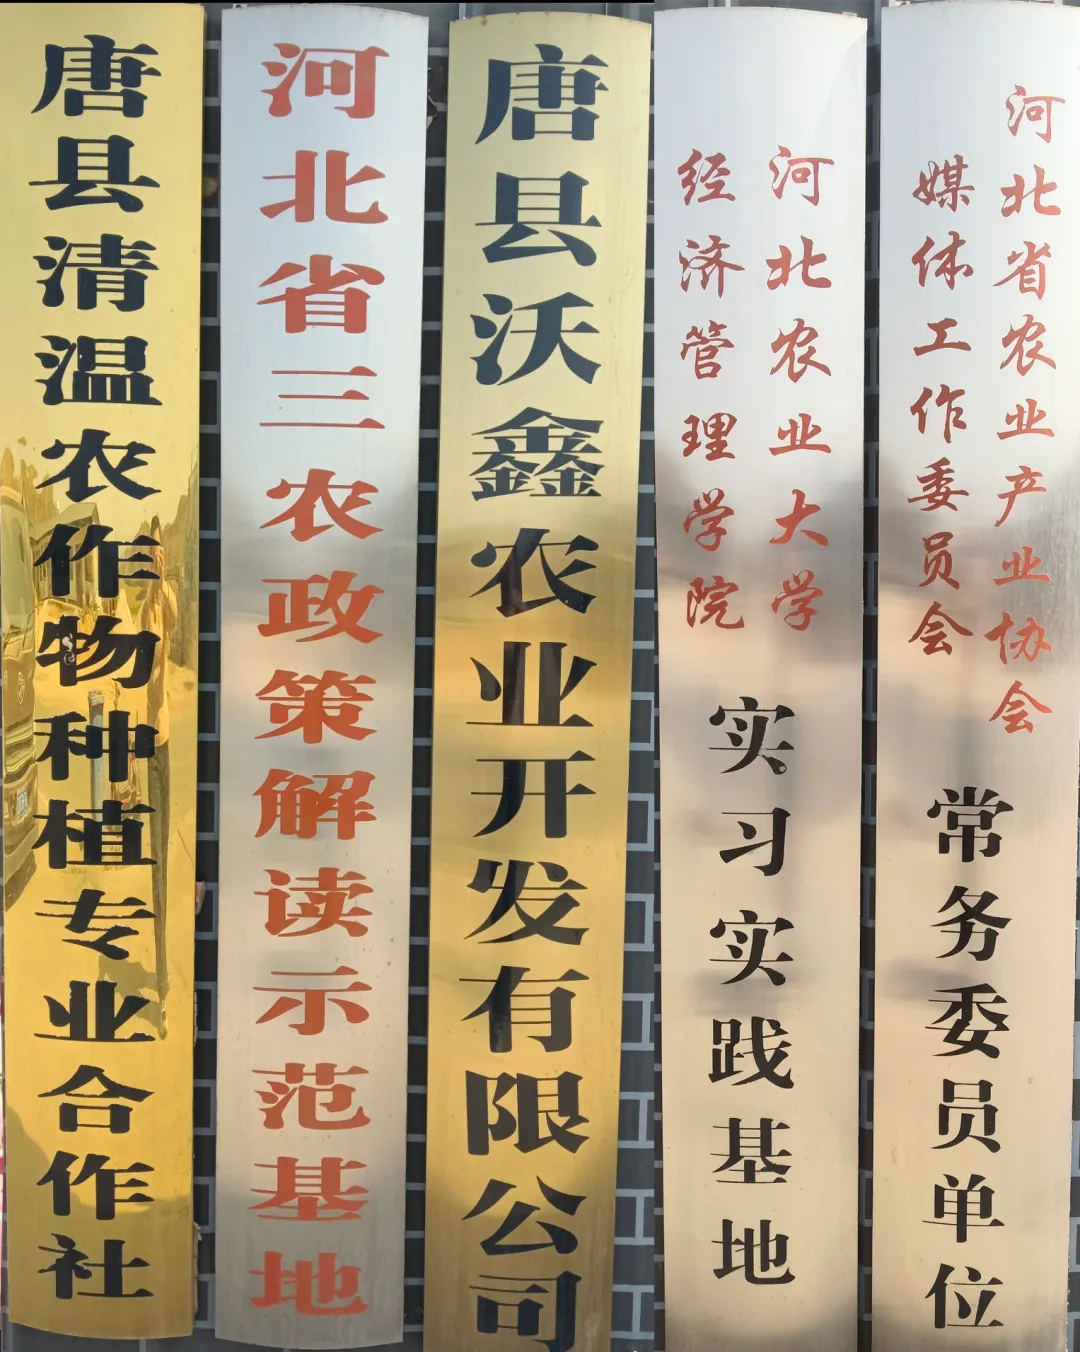 唐县清温农作物种植专业合作社
河北省三农政策解读示范基地
唐县沃鑫农业开发有限公司
河北农业大学
经济管理学院
实习实践基地
河北省农业产业协会
媒体工作委员会
常务委员单位